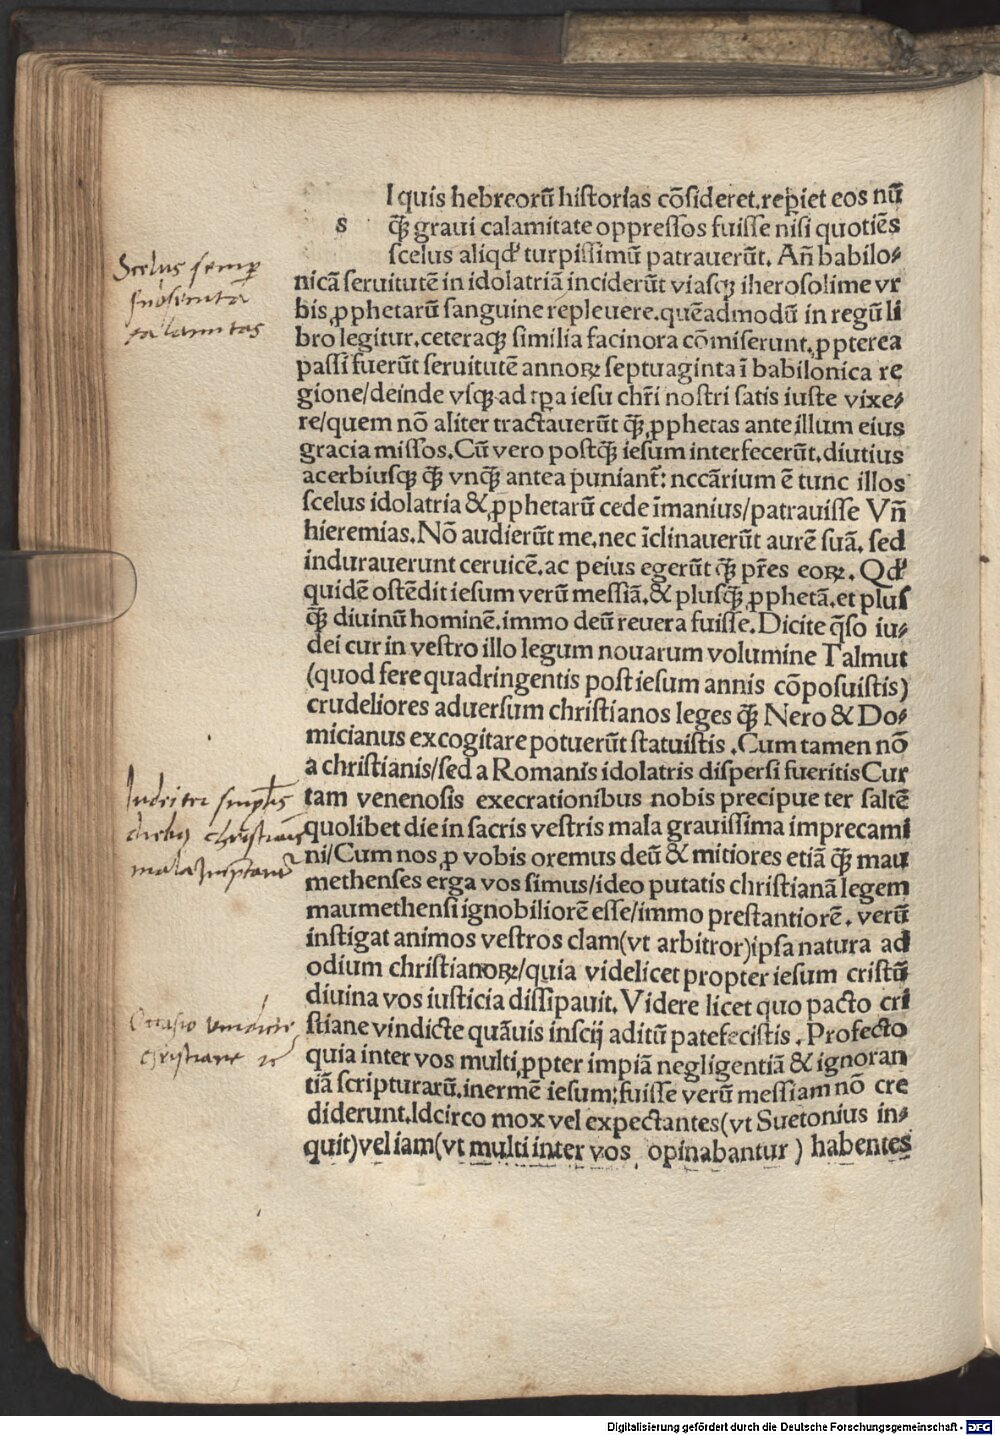 I quis hebreorū historias cōsideret, reꝑiet eos nū
s q̄ꝫ graui calamitate oppressos fuisse nisi quotiēs
scelus aliqd' turpissimū patrauerūt. Añ babilo⸗
nicā seruitutē in idolatriā inciderūt viasqꝫ iherosolime vr
bis ꝓphetarū sanguine repleuere. quēadmodū in regū li
bro legitur. ceteraqꝫ similia facinora cōmiserunt. ꝓpterea
passi fuerūt seruitutē annoꝝ septuaginta ī babilonica re
gione/deinde vsqꝫ ad tꝑa iesu chr̄i nostri satis iuste vixe⸗
re/quem nō aliter tractauerūt q̄ꝫ ꝓphetas ante illum eius
gracia missos. Cū vero postq̄ꝫ iesum interfecerūt. diutius
acerbiusqꝫ q̄ꝫ vnq̄ꝫ antea puniant᷑: nccārium ē tunc illos
scelus idolatria & ꝓphetarū cede īmanius/patrauisse Vñ
hieremias. Nō audierūt me. nec īclinauerūt aurē suā. sed
indurauerunt ceruicē. ac peius egerūt q̄ꝫ pr̄es eoꝝ. Qd'
quidē ostēdit iesum verū messiā. & plusq̄ꝫ ꝓphetā. et plus
q̄ꝫ diuinū hominē. immo deū reuera fuisse. Dicite q̄so iu⸗
dei cur in vestro illo legum nouarum volumine Talmut
(quod fere quadringentis post iesum annis cōposuistis)
crudeliores aduersum christianos leges q̄ꝫ Nero & Do⸗
micianus excogitare potuerūt statuistis. Cum tamen nō
a christianis/sed a Romanis idolatris dispersi fueritis Cur
tam venenosis execrationibus nobis precipue ter saltē
quolibet die in sacris vestris mala grauissima imprecami
ni/Cum nos ꝓ vobis oremus deū & mitiores etiā q̄ꝫ mau
methenses erga vos simus/ideo putatis christianā legem
maumethensi ignobiliorē esse/immo prestantiorē. verū
instigat animos vestros clam(vt arbitror)ipsa natura ad
odium christianoꝝ/quia videlicet propter iesum cristū
diuina vos iusticia dissipauit. Videre licet quo pacto cri
stiane vindicte quāuis inscij aditū patefecistis. Profecto
quia inter vos multi ꝓpter impiā negligentiā & ignoran
tiā scripturarū. inermē iesum: fuisse verū messiam nō cre
diderunt. Idcirco mox vel expectantes(vt Suetonius in⸗
quit)vel iam(vt multi inter vos opinabantur) habentes
Scelus semꝑ
calamitas
Iudei ter
diebus christianis
mala
Occasio vindicte
christiane
Digitalisierung gefördert durch die Deutsche Forschungsgemeinschaft - DFG